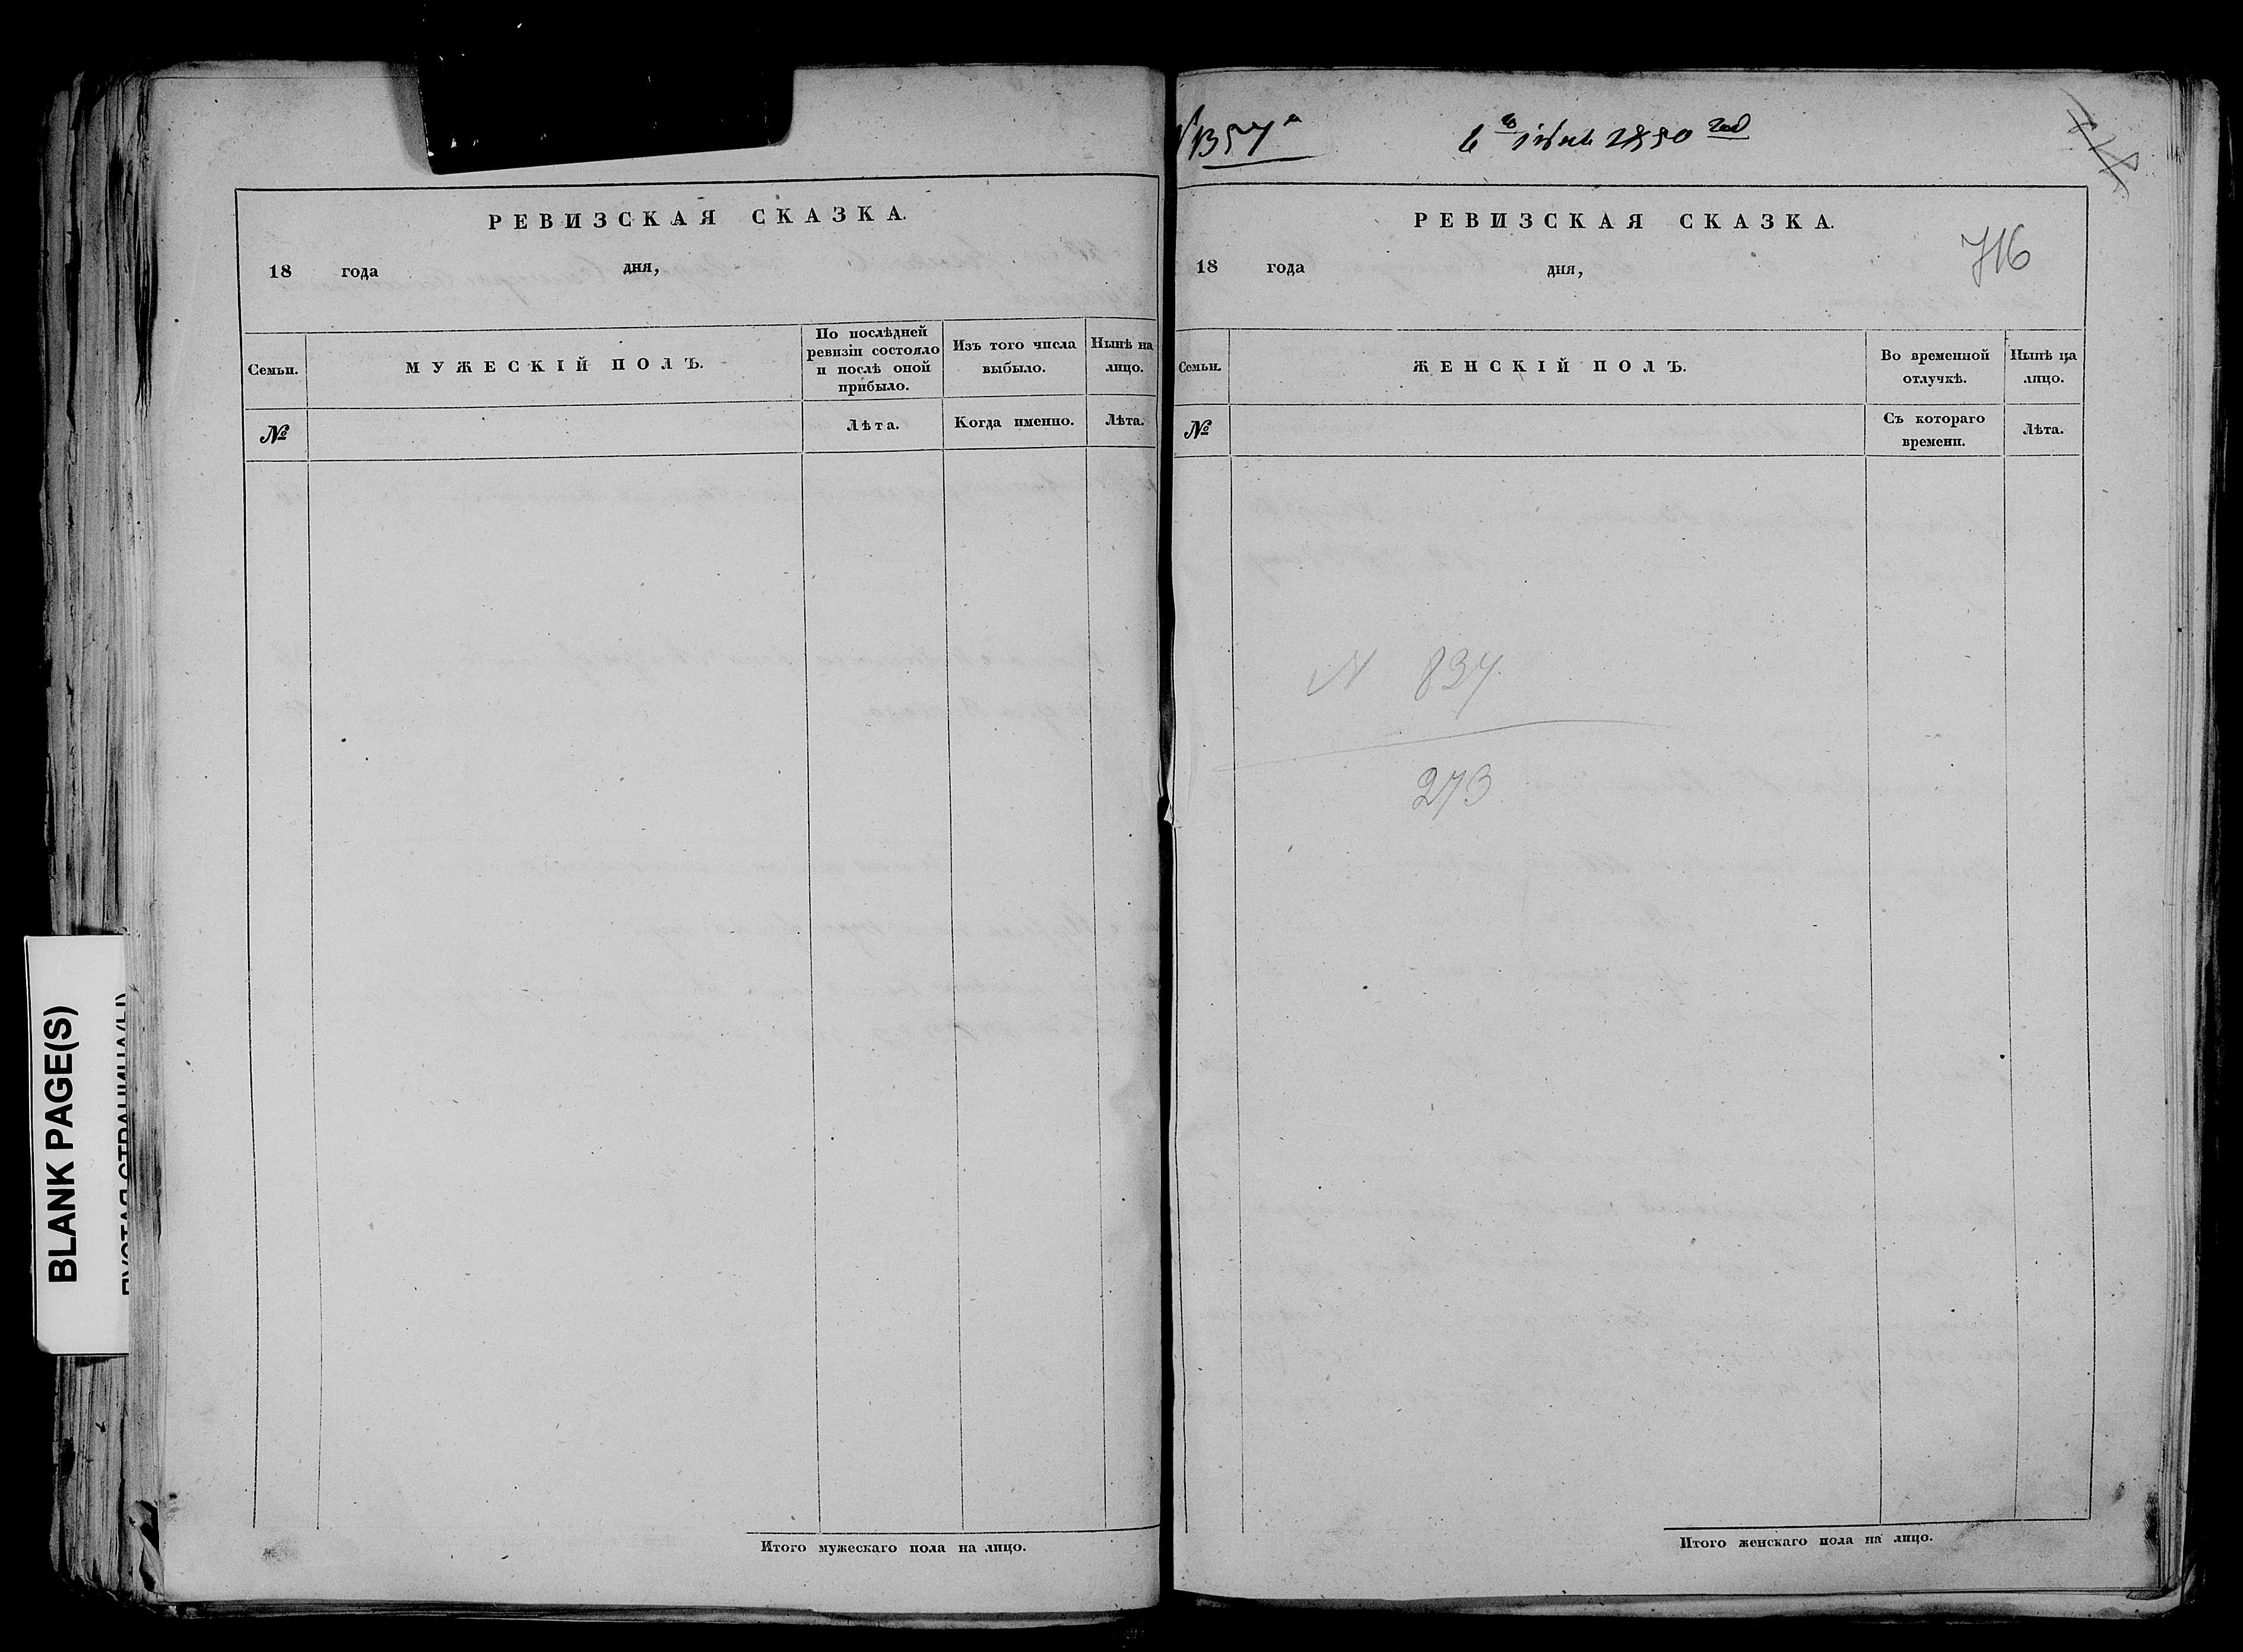 BLANK PAGE(S)
РЕВИЗСКАЯ СКАЗКА.
18 года дня,
Семьи.
МУЖЕСКІЙ ПОЛЪ.
По послѣдней
ревизіи состояло
и послѣ оной
прибыло.
Изъ того числа
выбыло.
Нынѣ на
лицо.
№
Лѣта.
Когда именно.
Лѣта.
Итого мужескаго пола на лицо.
1850
РЕВИЗСКАЯ СКАЗКА.
716
18 года дня,
Семьи.
ЖЕНСКІЙ ПОЛЪ.
Во временной
отлучкѣ.
Нынѣ на
лицо.
№
Съ котораго
времени.
Лѣта.
N 834
273
Итого женскаго пола на лицо.